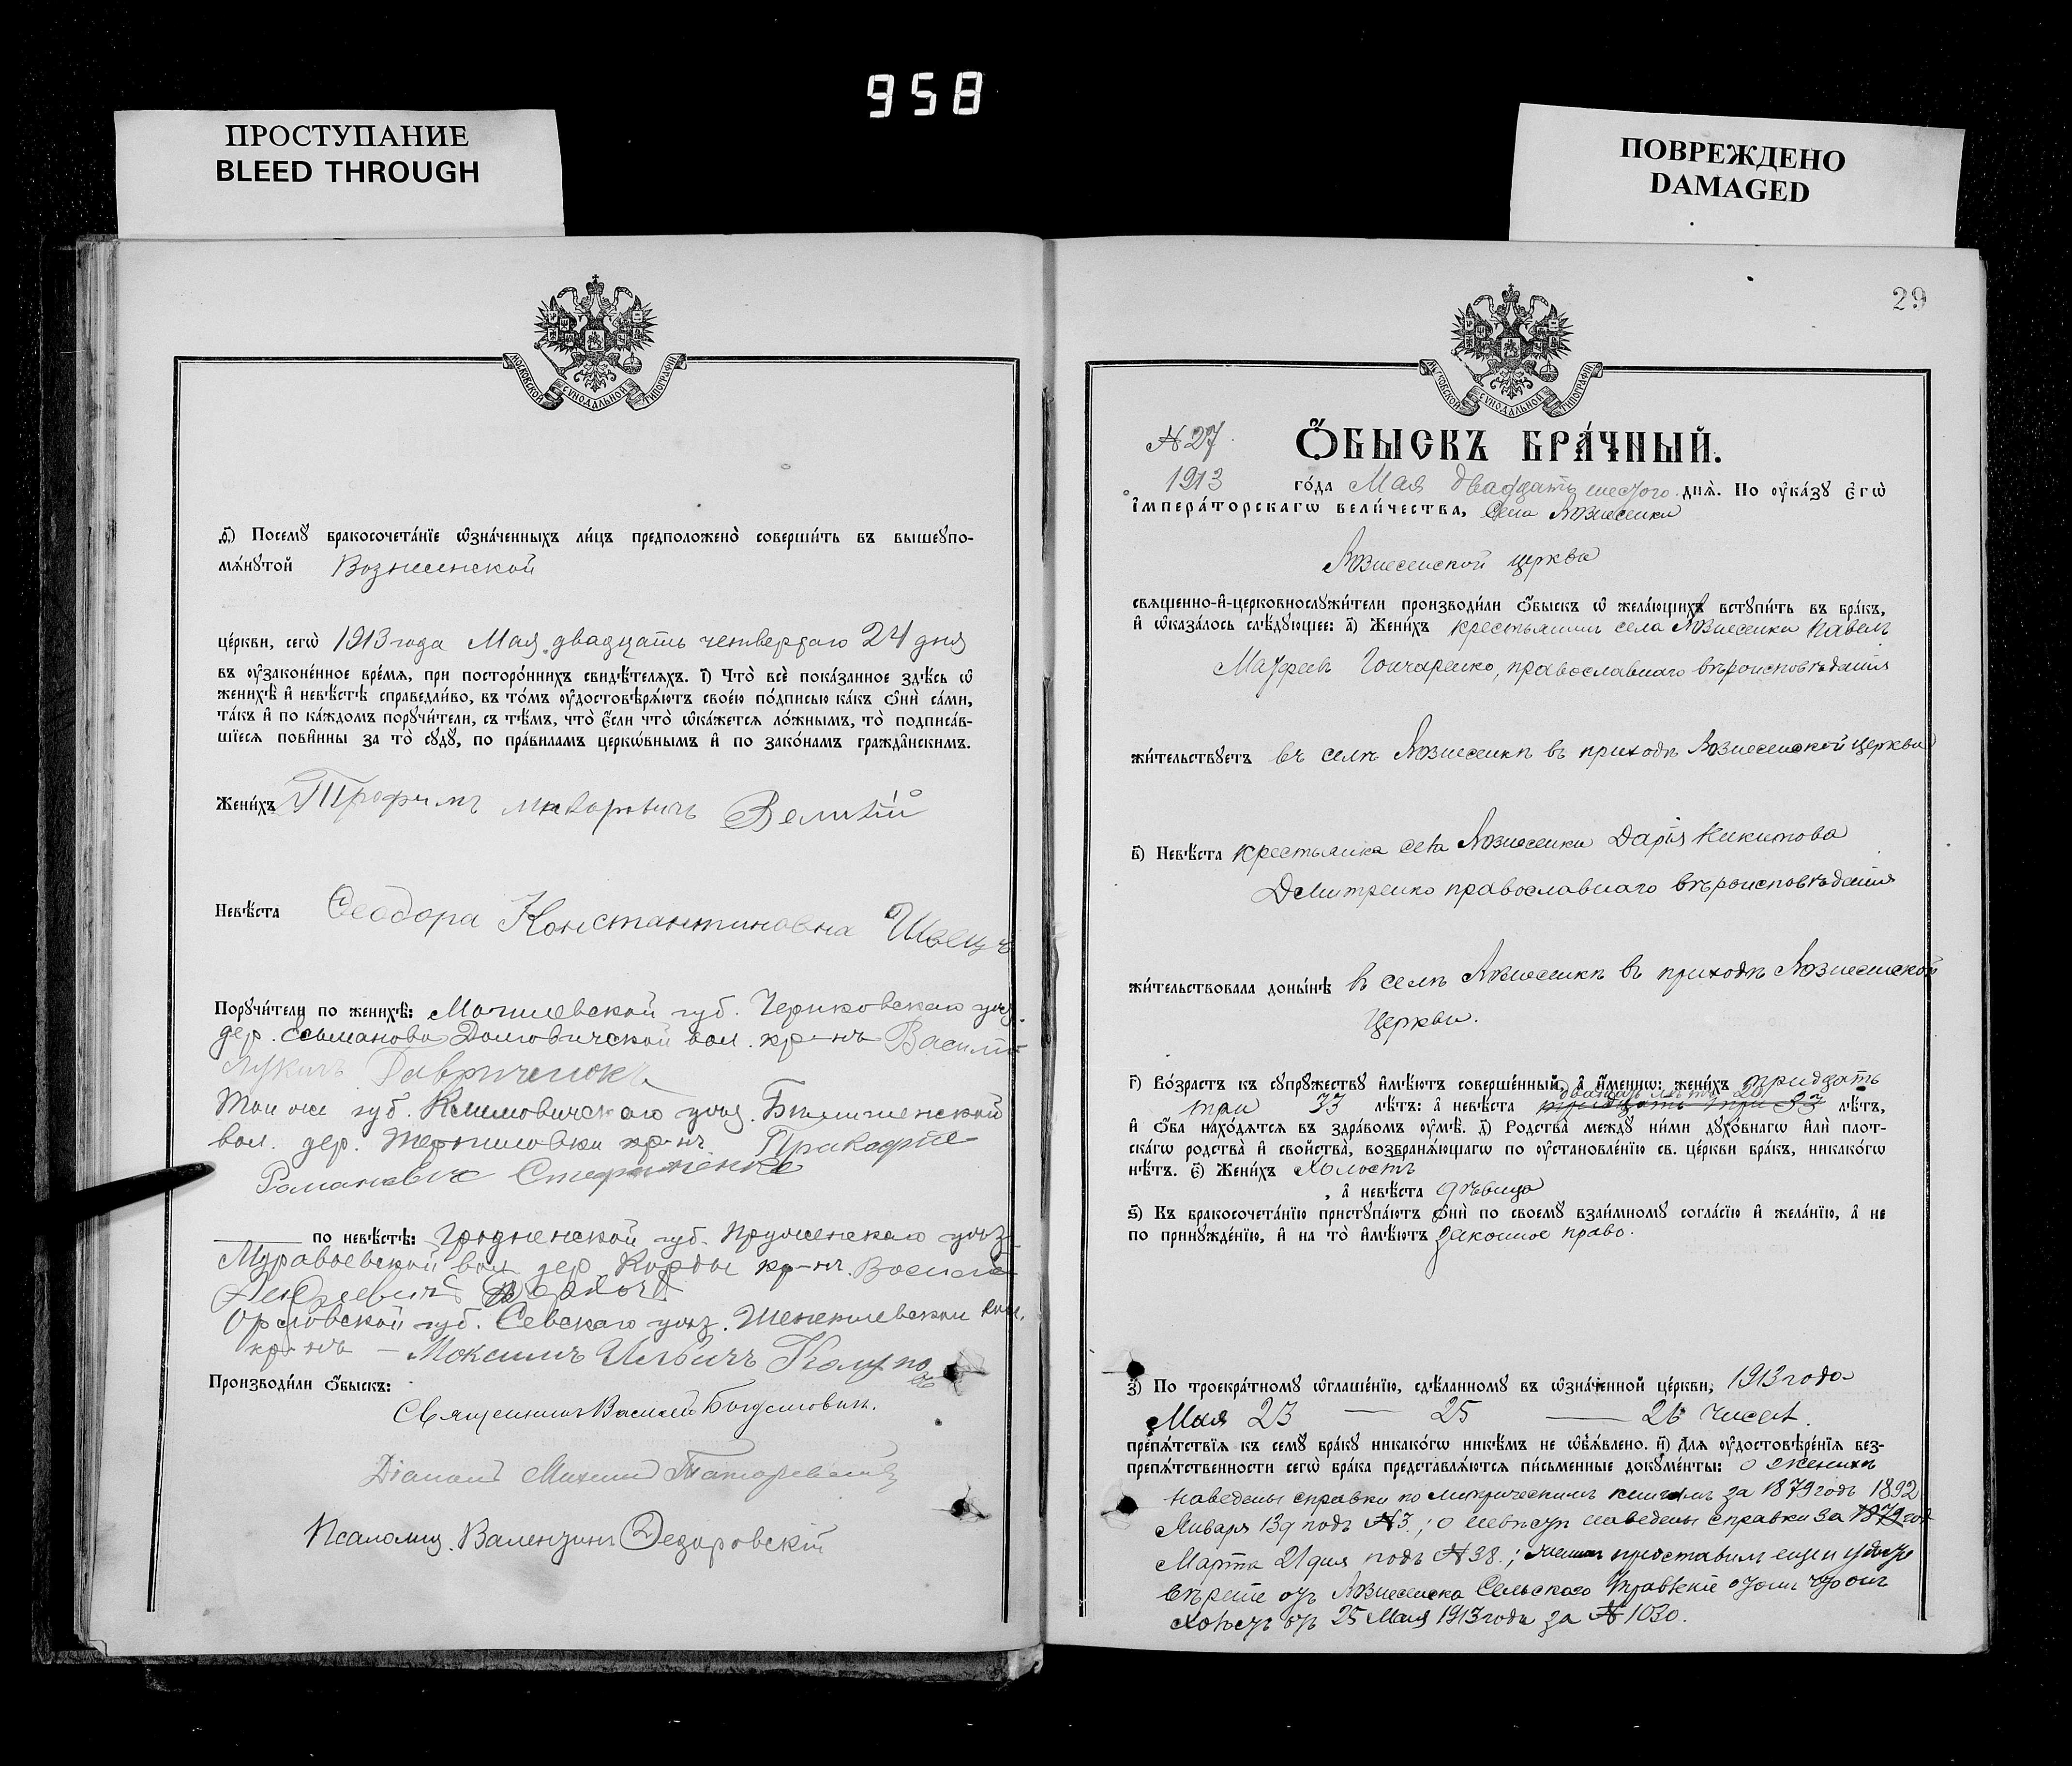 958
ПРОСТУПАНИЕ
BLEED THROUGH
ПОВРЕЖДЕНО
DAMAGED
МОСКОВСКОЙ СУНОДАЛЬНОЙ ТИПОГРАФІИ
д҃) Посемꙋ бракосочета́нїе ѡ҆зна́ченныхъ ли́цъ предположено̀ соверши́ть въ вышеꙋпо-
мѧ́нꙋтой Вознесенской
це́ркви, сегѡ̀ 1913 года Мая двадцать четвертаго 24 дня
въ ᲂу҆законе́нное вре́мѧ, при посторо́ннихъ свидѣ́телѧхъ. і҃) Что̀ всѐ пока́занное здѣ́сь ѡ҆
женихѣ̀ и҆ невѣ́стѣ справедли́во, въ то́мъ ᲂу҆достовѣрѧ́ютъ свое́ю по́дписью ка́къ ѻ҆нѝ са́ми,
та́къ и҆ по ка́ждомъ порꙋчи́тели, съ тѣ́мъ, что̀ є҆́сли что̀ ѡ҆ка́жетсѧ ло́жнымъ, то̀ подписа́в-
шїесѧ пови́нны за то̀ сꙋдꙋ̀, по пра́виламъ церко́внымъ и҆ по зако́намъ гражда̑нскимъ.
Жени́хъ Трофимъ Макаровичъ Великій
Невѣ́ста Ѳеодора Константиновна Швецъ
Порꙋчи́тели по женихѣ̀: Могилевской губ. Чериковскаго уѣз.
дер. Долговичской вол. кр-нъ Василій
Лукичъ Гавриченокъ
Той же губ. Климовичскаго уѣз.
вол. дер. кр-нъ Прокофіе
Романовъ
по невѣ́стѣ: Гродненской губ. Пружанскаго уѣз.
Муравьевской вол. дер. кр-нъ Василій
Орловской губ. Севскаго уѣз. вол.
кр-нъ – Максимъ Ильичъ
Производи́ли ѻ҆́быскъ:
Священникъ Василій
Діаконъ Михаилъ
Псаломщ. Валентинъ
29
МОСКОВСКОЙ СУНОДАЛЬНОЙ ТИПОГРАФІИ
№ 27.
Ѻ҆́БЫСКЪ БРА́ЧНЫЙ.
1913 го́да Мая двадцать шестого днѧ̀. По ᲂу҆ка́зꙋ є҆гѡ̀
і҆мпера́торскагѡ вели́чества, Села Вознесенки
Вознесенской церкви
свѧщенно-и҆-церковнослꙋжи́тели производи́ли ѻ҆́быскъ ѡ҆ жела́ющихъ встꙋпи́ть въ бра́къ,
и҆ ѡ҆каза́лось слѣ́дꙋющее: а҃) Жени́хъ крестьянинъ села Вознесенки Павелъ
Матѳеевъ Гончаренко, православнаго вѣроисповѣданія
жи́тельствꙋетъ въ селѣ Вознесенкѣ въ приходѣ Вознесенской церкви
в҃) Невѣ́ста крестьянка села Вознесенки Дарія Никитова
Дмитренко православнаго вѣроисповѣданія
жи́тельствовала доны́нѣ въ селѣ Вознесенкѣ въ приходѣ Вознесенской
церкви.
г҃) Во́зрастъ къ сꙋпрꙋ́жествꙋ и҆мѣ́ютъ соверше́нный, а҆ и҆́менно: жени́хъ тридцать
три 33 лѣ́тъ: а҆ невѣ́ста тридцать три 33 лѣ́тъ,
и҆ ѻ҆́ба нахо́дѧтсѧ въ здра́вомъ ᲂу҆мѣ̀. д҃) Родства̀ междꙋ ни́ми дꙋхо́внагѡ и҆лѝ плот-
ска́гѡ родства̀ и҆ сво́йства, возбранѧ́ющагѡ по ᲂу҆становле́нїю св. це́ркви бра́къ, никако́гѡ
нѣ́тъ. є҃) Жени́хъ Холостъ
, а҆ невѣ́ста дѣвица
ѕ҃) Къ бракосочета́нїю пристꙋпа́ютъ ѻ҆нѝ по своемꙋ̀ взаи́мномꙋ согла́сїю и҆ жела́нїю, а҆ не
по принꙋжде́нїю, и҆ на то̀ и҆мѣ́ютъ законное право.
з҃) По троекра́тномꙋ ѡ҆глаше́нїю, сдѣ́ланномꙋ въ ѡ҆зна́ченной це́ркви, 1913 года
Мая 23 — 25 — 26 чиселъ.
препѧ́тствїѧ къ семꙋ̀ бра́кꙋ никако́гѡ никѣ́мъ не ѡ҆б̾ѧ́влено. и҃) Длѧ ᲂу҆достовѣре́нїѧ без-
препѧ́тственности сегѡ̀ бра́ка представлѧ́ютсѧ пи́сьменные докꙋме́нты: о женихѣ
наведены справки по метрическимъ книгамъ за 1879 годъ 1892
Января 13 д подъ № 3.; о невѣстѣ наведены справки за 1879 год
Марта 21 дня подъ № 38.; женихъ представилъ еще и удосто
вѣреніе отъ Вознесенска Сельскаго Правленія о томъ что онъ
холостъ отъ 25 Мая 1913 года за № 1030.